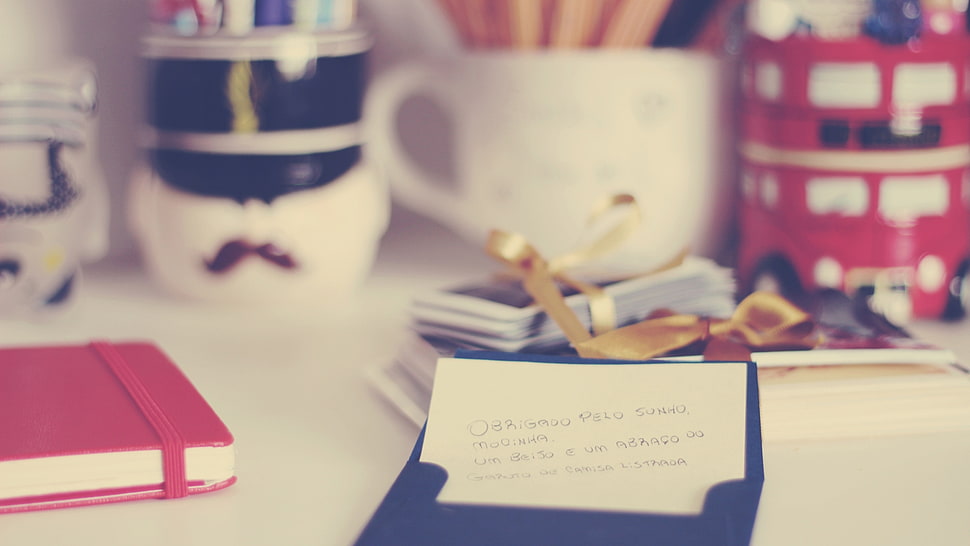 OBRIGADO PELO SONHO,
MOCINHA.
UM BEIJO E UM ABRAÇO DO
GAROTO DE CAMISA LISTRADA